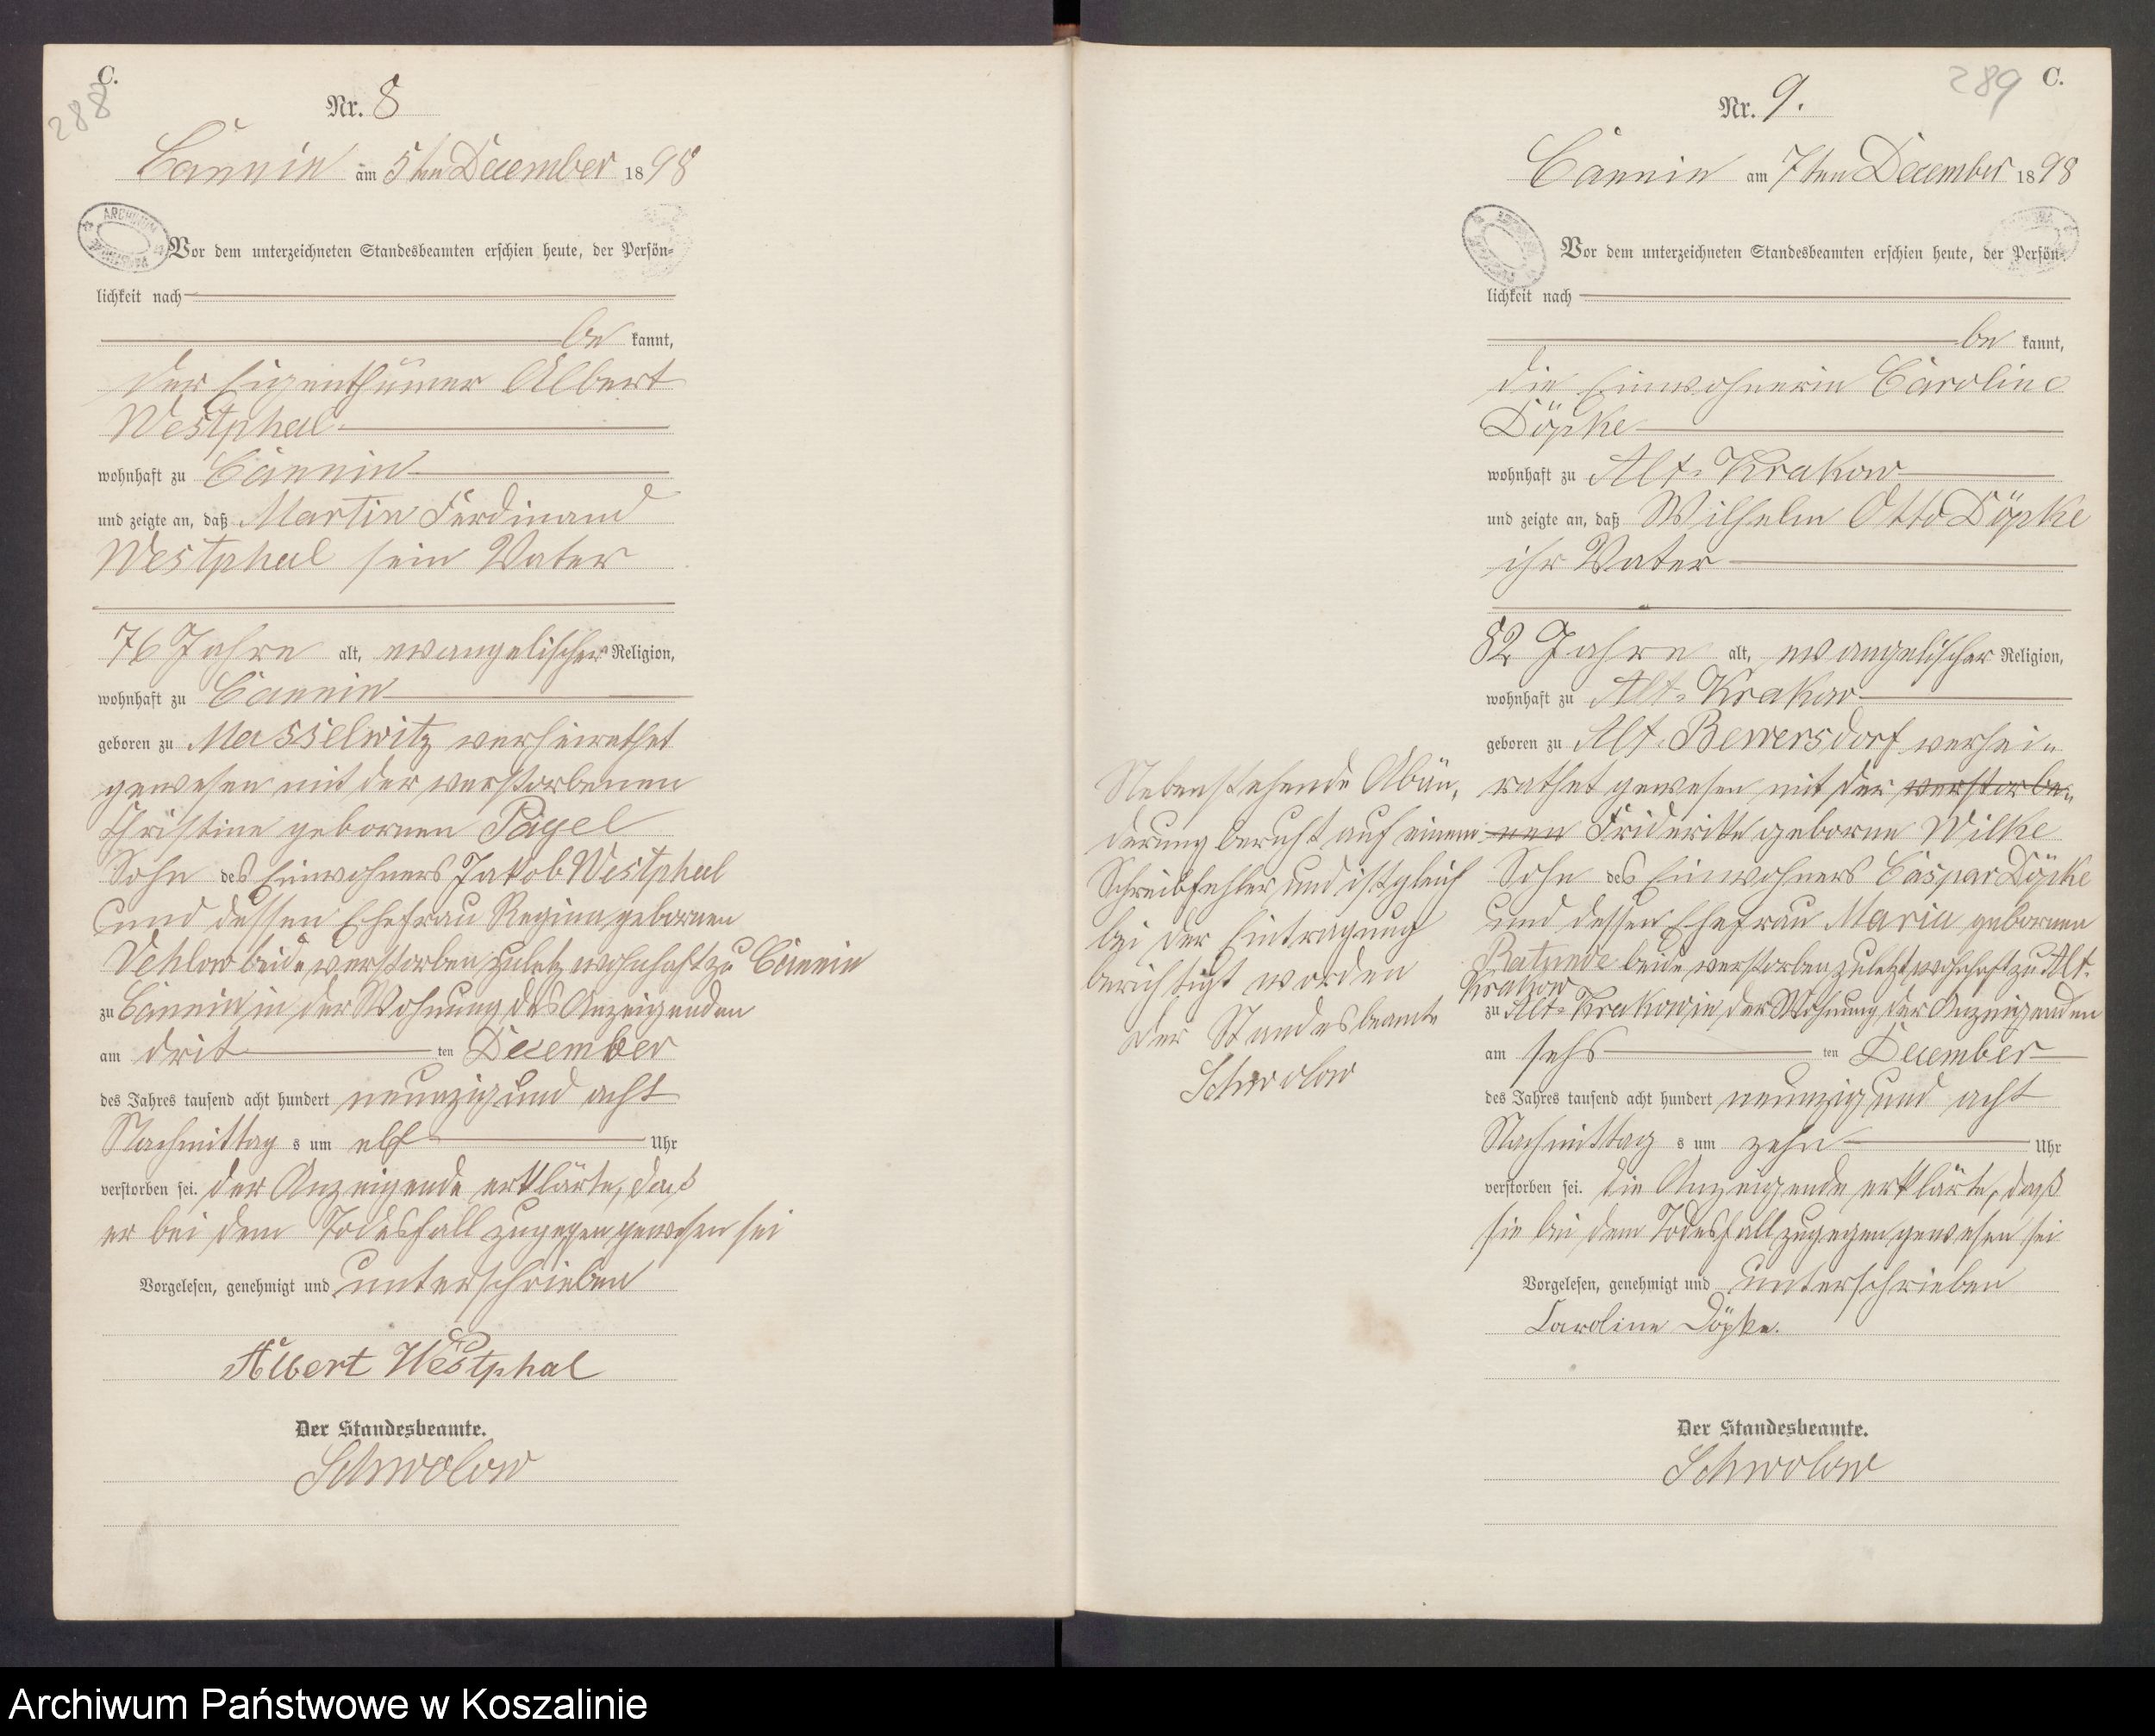 C.
288
Nr. 8
Cannin am 5ten December 1898
Vor dem unterzeichneten Standesbeamten erschien heute, der Persön=
lichkeit nach
be kannt,
der Eigenthümer Albert
Westphal
wohnhaft zu Cannin
und zeigte an, daß Martin Ferdinand
Westphal sein Vater
76 Jahre alt, evangelischer Religion,
wohnhaft zu Cannin
geboren zu Masselwitz verheirathet
gewesen mit der verstorbenen
Christine gebornen Pagel
Sohn des Einwohners Jakob Westphal
und dessen Ehefrau Regine gebornen
Vehlow beide verstorben zuletz wohnhaft zu Cannin
zu Cannin in der Wohnung des Anzeigenden
am drit ten December
des Jahres tausend acht hundert neunzig und acht
Nachmittag s um elf Uhr
verstorben sei. der Anzeigende erklärte, daß
er bei dem Todesfall zugegen gewesen sei
Vorgelesen, genehmigt und unterschrieben
Albert Westphal
Der Standesbeamte.
Schwolow
289 C.
Nr. 9.
Cannin am 7ten December 1898
Vor dem unterzeichneten Standesbeamten erschien heute, der Persön=
lichkeit nach
be kannt,
die Einwohnerin Caroline
Döpke
wohnhaft zu Alt-Krakow
und zeigte an, daß Wilhelm Otto Döpke
ihr Vater
82 Jahre alt, evangelischer Religion,
wohnhaft zu Alt-Krakow
geboren zu Alt-Bewersdorf verhei-
rathet gewesen mit der verstorbe-
nen Friderike geborne Wilke
Sohn des Einwohners Caspar Döpke
und dessen Ehefrau Maria gebornen
Ratzunde beide verstorben zuletzt wohnhaft zu Alt-
Krakow
zu Alt-Krakow in der Wohnung der Anzeigenden
am sehs ten December
des Jahres tausend acht hundert neunzig und acht
Nachmittag s um zehn Uhr
verstorben sei. die Anzeigende erklärte, daß
sie bei dem Todesfall zugegen gewesen sei
Vorgelesen, genehmigt und unterschrieben
Caroline Döpke.
Der Standesbeamte.
Schwolow
Nebenstehende Abän-
derung beruht auf einem
Schreibfehler und ist gleich
bei der Eintragung
berichtigt worden
der Standesbeamte
Schwolow
Archiwum Państwowe w Koszalinie